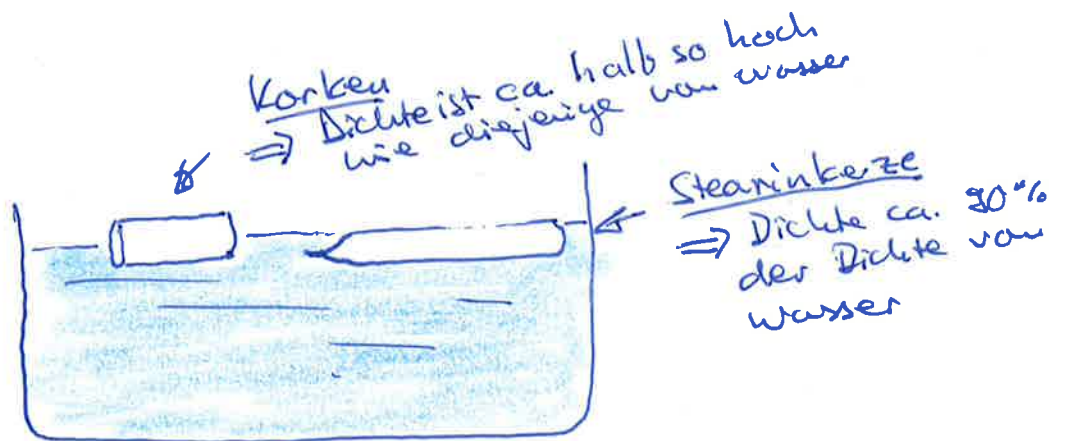 Korken
⇒ Dichte ist ca. halb so hoch
wie diejenige von wasser
Stearinkerze
⇒ Dichte ca. 90%
der Dichte von
wasser